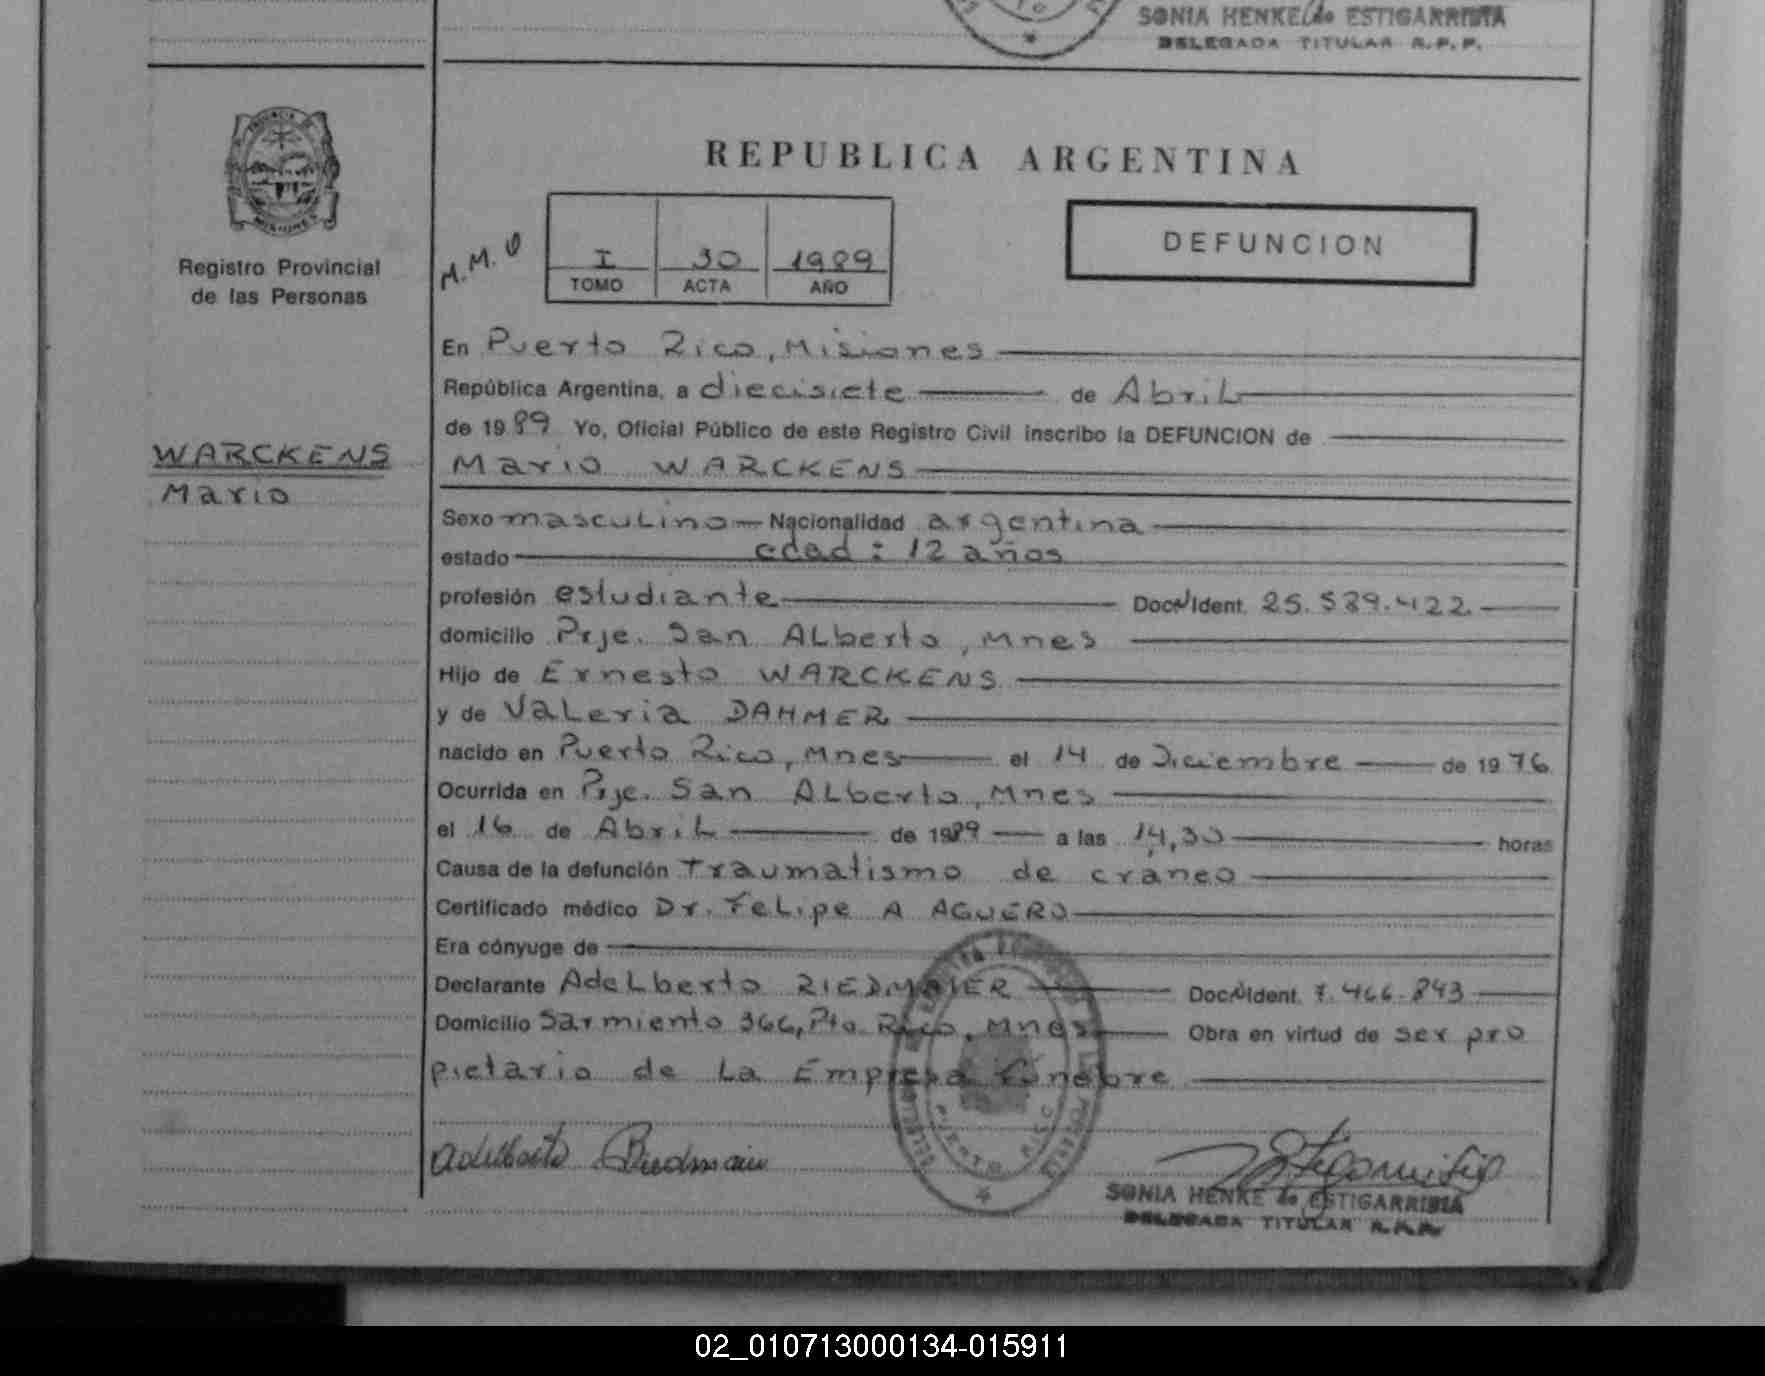 SONIA HENKE de ESTIGARRIBIA
DELEGADA TITULAR R.P.P.
Registro Provincial
de las Personas
WARCKENS
Mario
REPUBLICA ARGENTINA
M.M.O
I 30 1989
TOMO ACTA AÑO
DEFUNCION
En Puerto Rico, Misiones
República Argentina, a diecisiete de Abril
de 1989 Yo, Oficial Público de este Registro Civil inscribo la DEFUNCION de
Mario WARCKENS
Sexo masculino Nacionalidad argentina
estado edad: 12 años
profesión estudiante Doc. Ident. 25.589.422.
domicilio Prje. San Alberto, Mnes
Hijo de Ernesto WARCKENS
y de Valeria DAHMER
nacido en Puerto Rico, Mnes el 14 de Diciembre de 1976
Ocurrida en Prje. San Alberto, Mnes
el 16 de Abril de 1989 a las 14,30 horas
Causa de la defunción Traumatismo de craneo
Certificado médico Dr. Felipe A AGUERO
Era cónyuge de
Declarante Adelberto RIEDMAIER Doc. Ident. 7.466.843
Domicilio Sarmiento 366, Pto Rico, Mnes Obra en virtud de ser pro
pietario de La Empresa Funebre
Adelberto Riedmaier
PUERTO RICO
SONIA HENKE de ESTIGARRIBIA
DELEGADA TITULAR R.P.P.
02_010713000134-015911